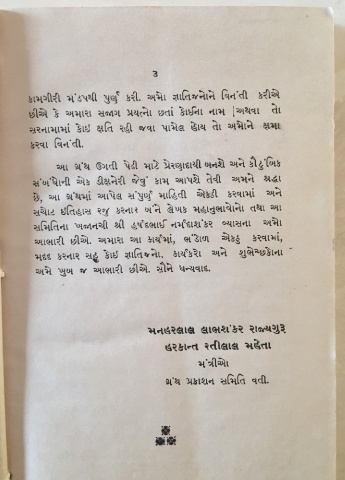 ૩
કામગીરી મંડપથી પુર્ણ કરી. અમો જ્ઞાતિજનોને વિનંતી કરીએ
છીએ કે અમારા સજાગ પ્રયત્નો છતાં કોઇના નામ અથવા તો
સરનામામાં કોઇ ક્ષતિ રહી જવા પામેલ હોય તો અમોને ક્ષમા
કરવા વિનંતી.
આ ગ્રંથ ઉગતી પેઢી માટે પ્રેરણાદાયી બનશે અને કૌટુંબિક
સંબંધોની એક ડીક્ષનેરી જેવું કામ આપશે તેવી અમને શ્રદ્ધા
છે, આ ગ્રંથમાં આપેલ સંપુર્ણ માહિતી એકઠી કરવામાં અને
સચોટ ઈતિહાસ રજુ કરનાર બંને લેખક મહાનુભાવોના તથા આ
સમિતિના ખજાનચી શ્રી હર્ષદભાઈ નર્મદાશંકર વ્યાસના અમો
આભારી છીએ. અમારા આ કાર્યમાં, ભંડોળ એકઠું કરવામાં,
મદદ કરનાર સહુ કોઇ જ્ઞાતિજનો, કાર્યકરો અને શુભેચ્છકોના
અમે ખુબ જ આભારી છીએ. સૌને ધન્યવાદ.
મનહરલાલ લાભશંકર રાજ્યગુરૂ
હરકાન્ત રતીલાલ મહેતા
મંત્રીઓ
ગ્રંથ પ્રકાશન સમિતિ વતી.